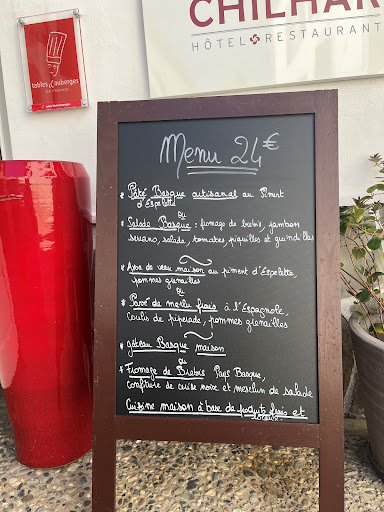 CHILHAR
HÔTEL RESTAURANT
tables & auberges
DE FRANCE
Menu 24€
* Pâté Basque artisanal au Piment
d'Espelette
ou
* Salade Basque : fromage de brebis, jambon
serrano, salade, tomates, piquillos et guindilles
* Axoa de veau maison au piment d'Espelette,
pommes grenailles
ou
* Pavé de merlu frais à l'Espagnole,
Coulis de piperade, pommes grenailles
* gâteau Basque maison
ou
* Fromage de Brebis Pays Basque,
Confiture de cerise noire et mesclun de salade
Cuisine maison à base de produits frais et
locaux